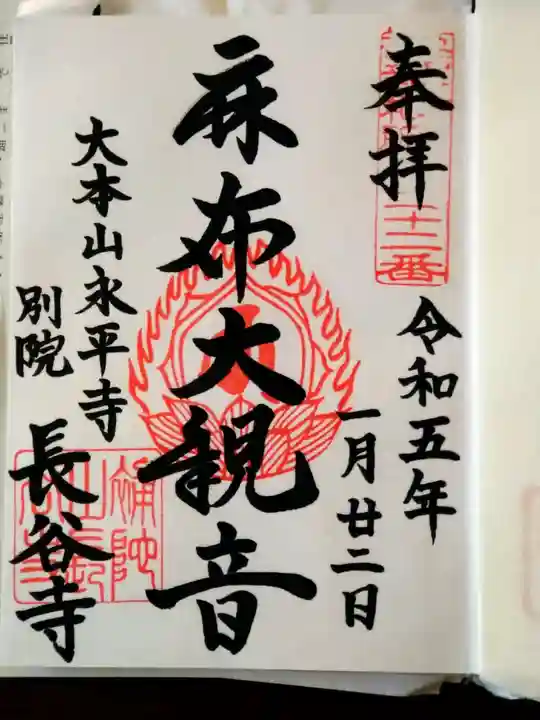 奉拝
二十二番
令和五年
一月廿二日
麻布大観音
大本山永平寺
別院
長谷寺